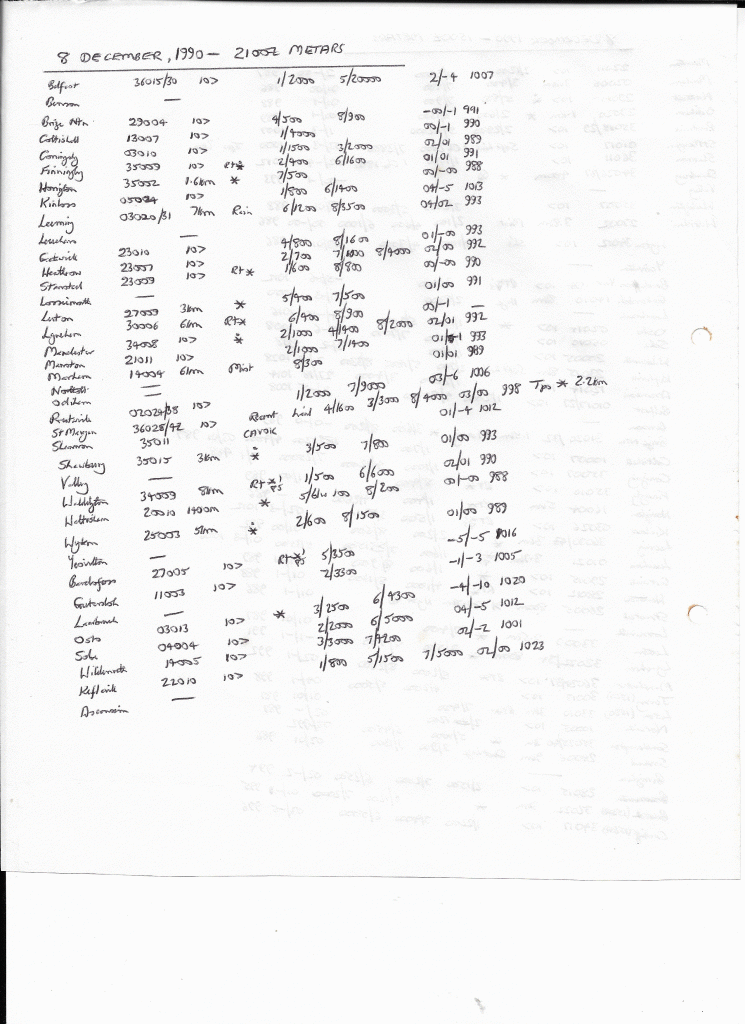 8 DECEMBER, 1990 — 2100Z METARS
Belfast 36015/30 10> 1/2000 5/20000 2/-4 1007
Benson —
Brize Ntn 29004 10> 4/500 8/900 -00/-1 991
Coltishall 13007 10> 1/4000 00/-1 990
Coningsby 03010 10> 1/1500 3/2000 02/01 989
Finningley 35009 10> Rt* 2/400 6/1600 01/01 991
Honington 35002 1.6km * 7/500 00/-00 988
Kinloss 05024 10> 1/800 6/1400 04/-5 1013
Leeming 03020/31 7km Rain 6/1200 8/3500 04/02 993
Leuchars —
Gatwick 23010 10> 4/800 8/1600 01/-00 993
Heathrow 23007 10> 2/700 7/1000 8/4000 02/00 992
Stansted 23009 10> Rt* 1/600 8/800 00/-00 990
Lossiemouth —
Luton 27009 3km * 5/400 7/500 01/00 991
Lyneham 30006 6km Rt* 6/400 8/900 00/-1 —
Manchester 34008 10> * 2/1000 4/1400 8/2000 02/01 992
Manston 21011 10> 2/1900 7/1400 993
Marham 14004 6km Mist 8/300 01/01 989
Northolt —
Odiham —
Prestwick 02024/38 10> 1/2000 7/9000 03/-6 1006
St Mawgan 36028/42 10> Recent hail 4/1600 3/3000 8/4000 03/00 998 * 2.2km
Shannon 35011 CAVOK 01/-4 1012
Shawbury 35015 3km * 3/500 7/800 01/00 993
Valley —
Waddington 34009 8km Rt* 1/500 6/600 02/01 990
Wattisham 20010 1400m * 100 8/200 00/-00 988
Wyton 25003 5km * 2/600 8/1500 01/00 989
Yeovilton —
Bardufoss 27005 10> Rt* 5/3500 -5/-5 1016
Gutersloh 11003 10> 2/3300 -1/-3 1005
Laarbruch —
Oslo 03013 10> * 3/2500 6/4300 -4/-10 1020
Sola 04004 10> 2/2000 6/5000 04/-5 1012
Wildenrath 14005 10> 3/3000 7/4200 02/-2 1001
Keflavik 22010 10> 1/800 5/1500 7/5000 02/00 1023
Ascension —